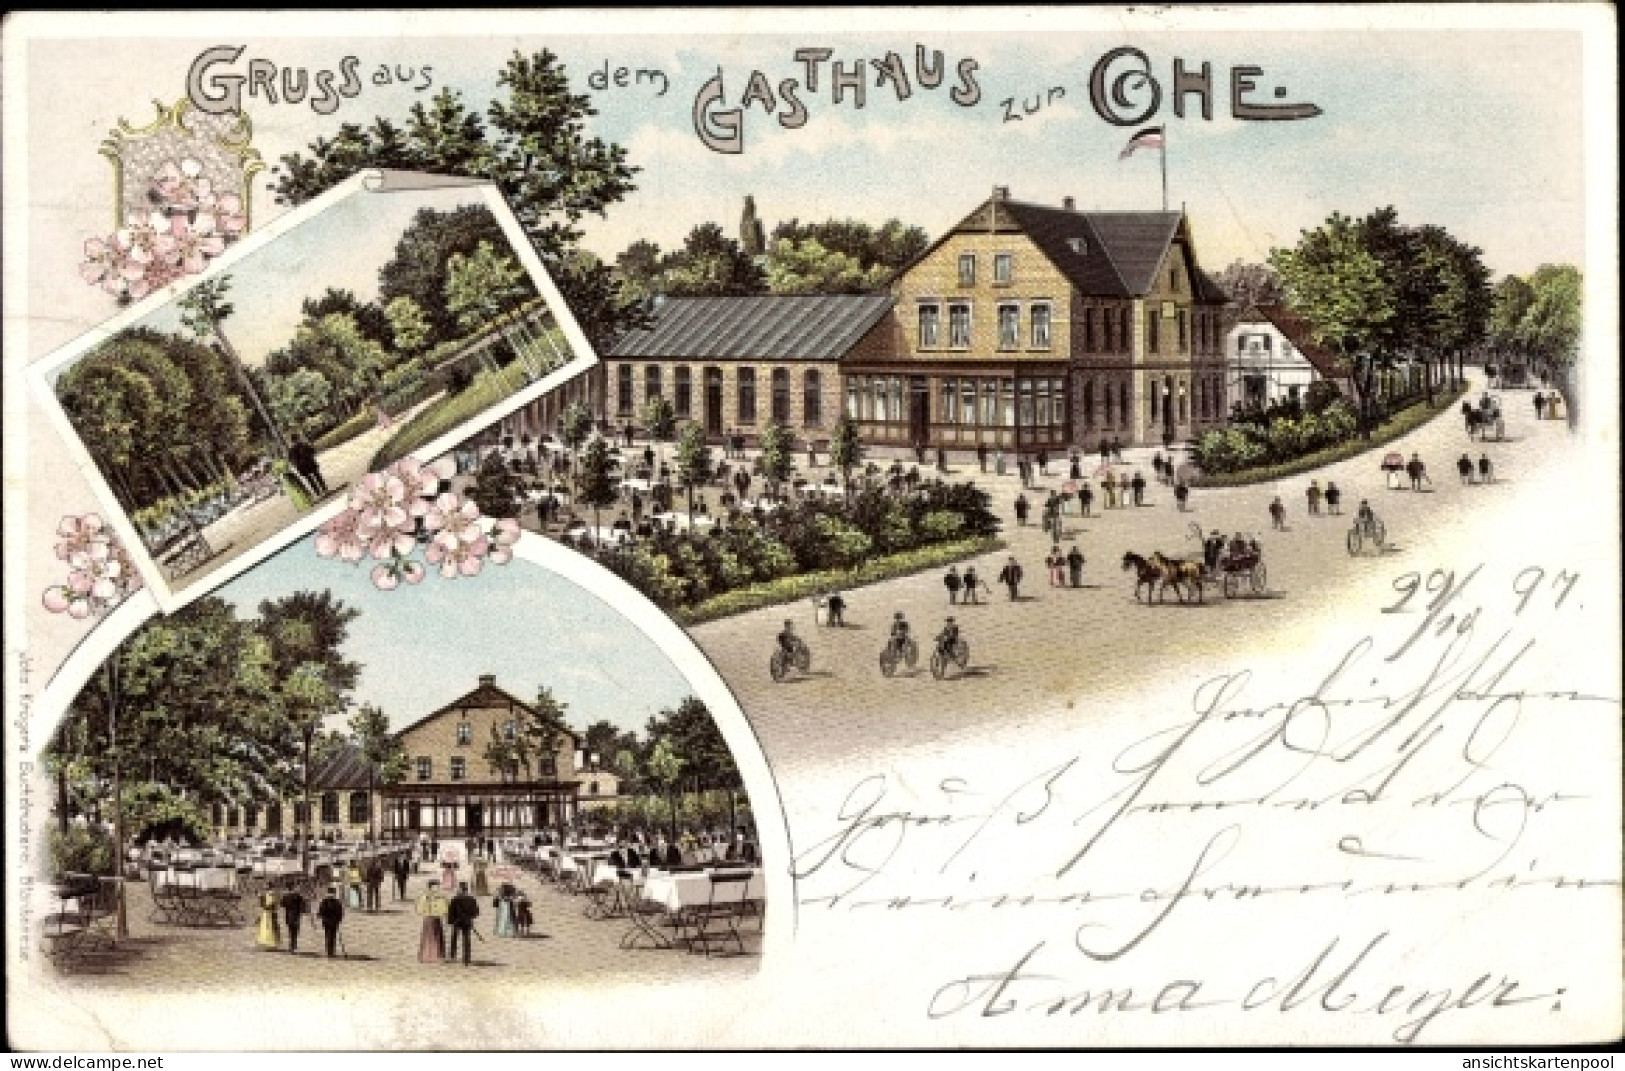 Gruss aus dem Gasthaus zur Ohe.
29/10 97.
Herzlichsten
Gruß sendet dir
deine Freundin
Anna Meyer.
Johs. Krögers Buchdruckerei, Blankenese
delcampe.net
ansichtskartenpool